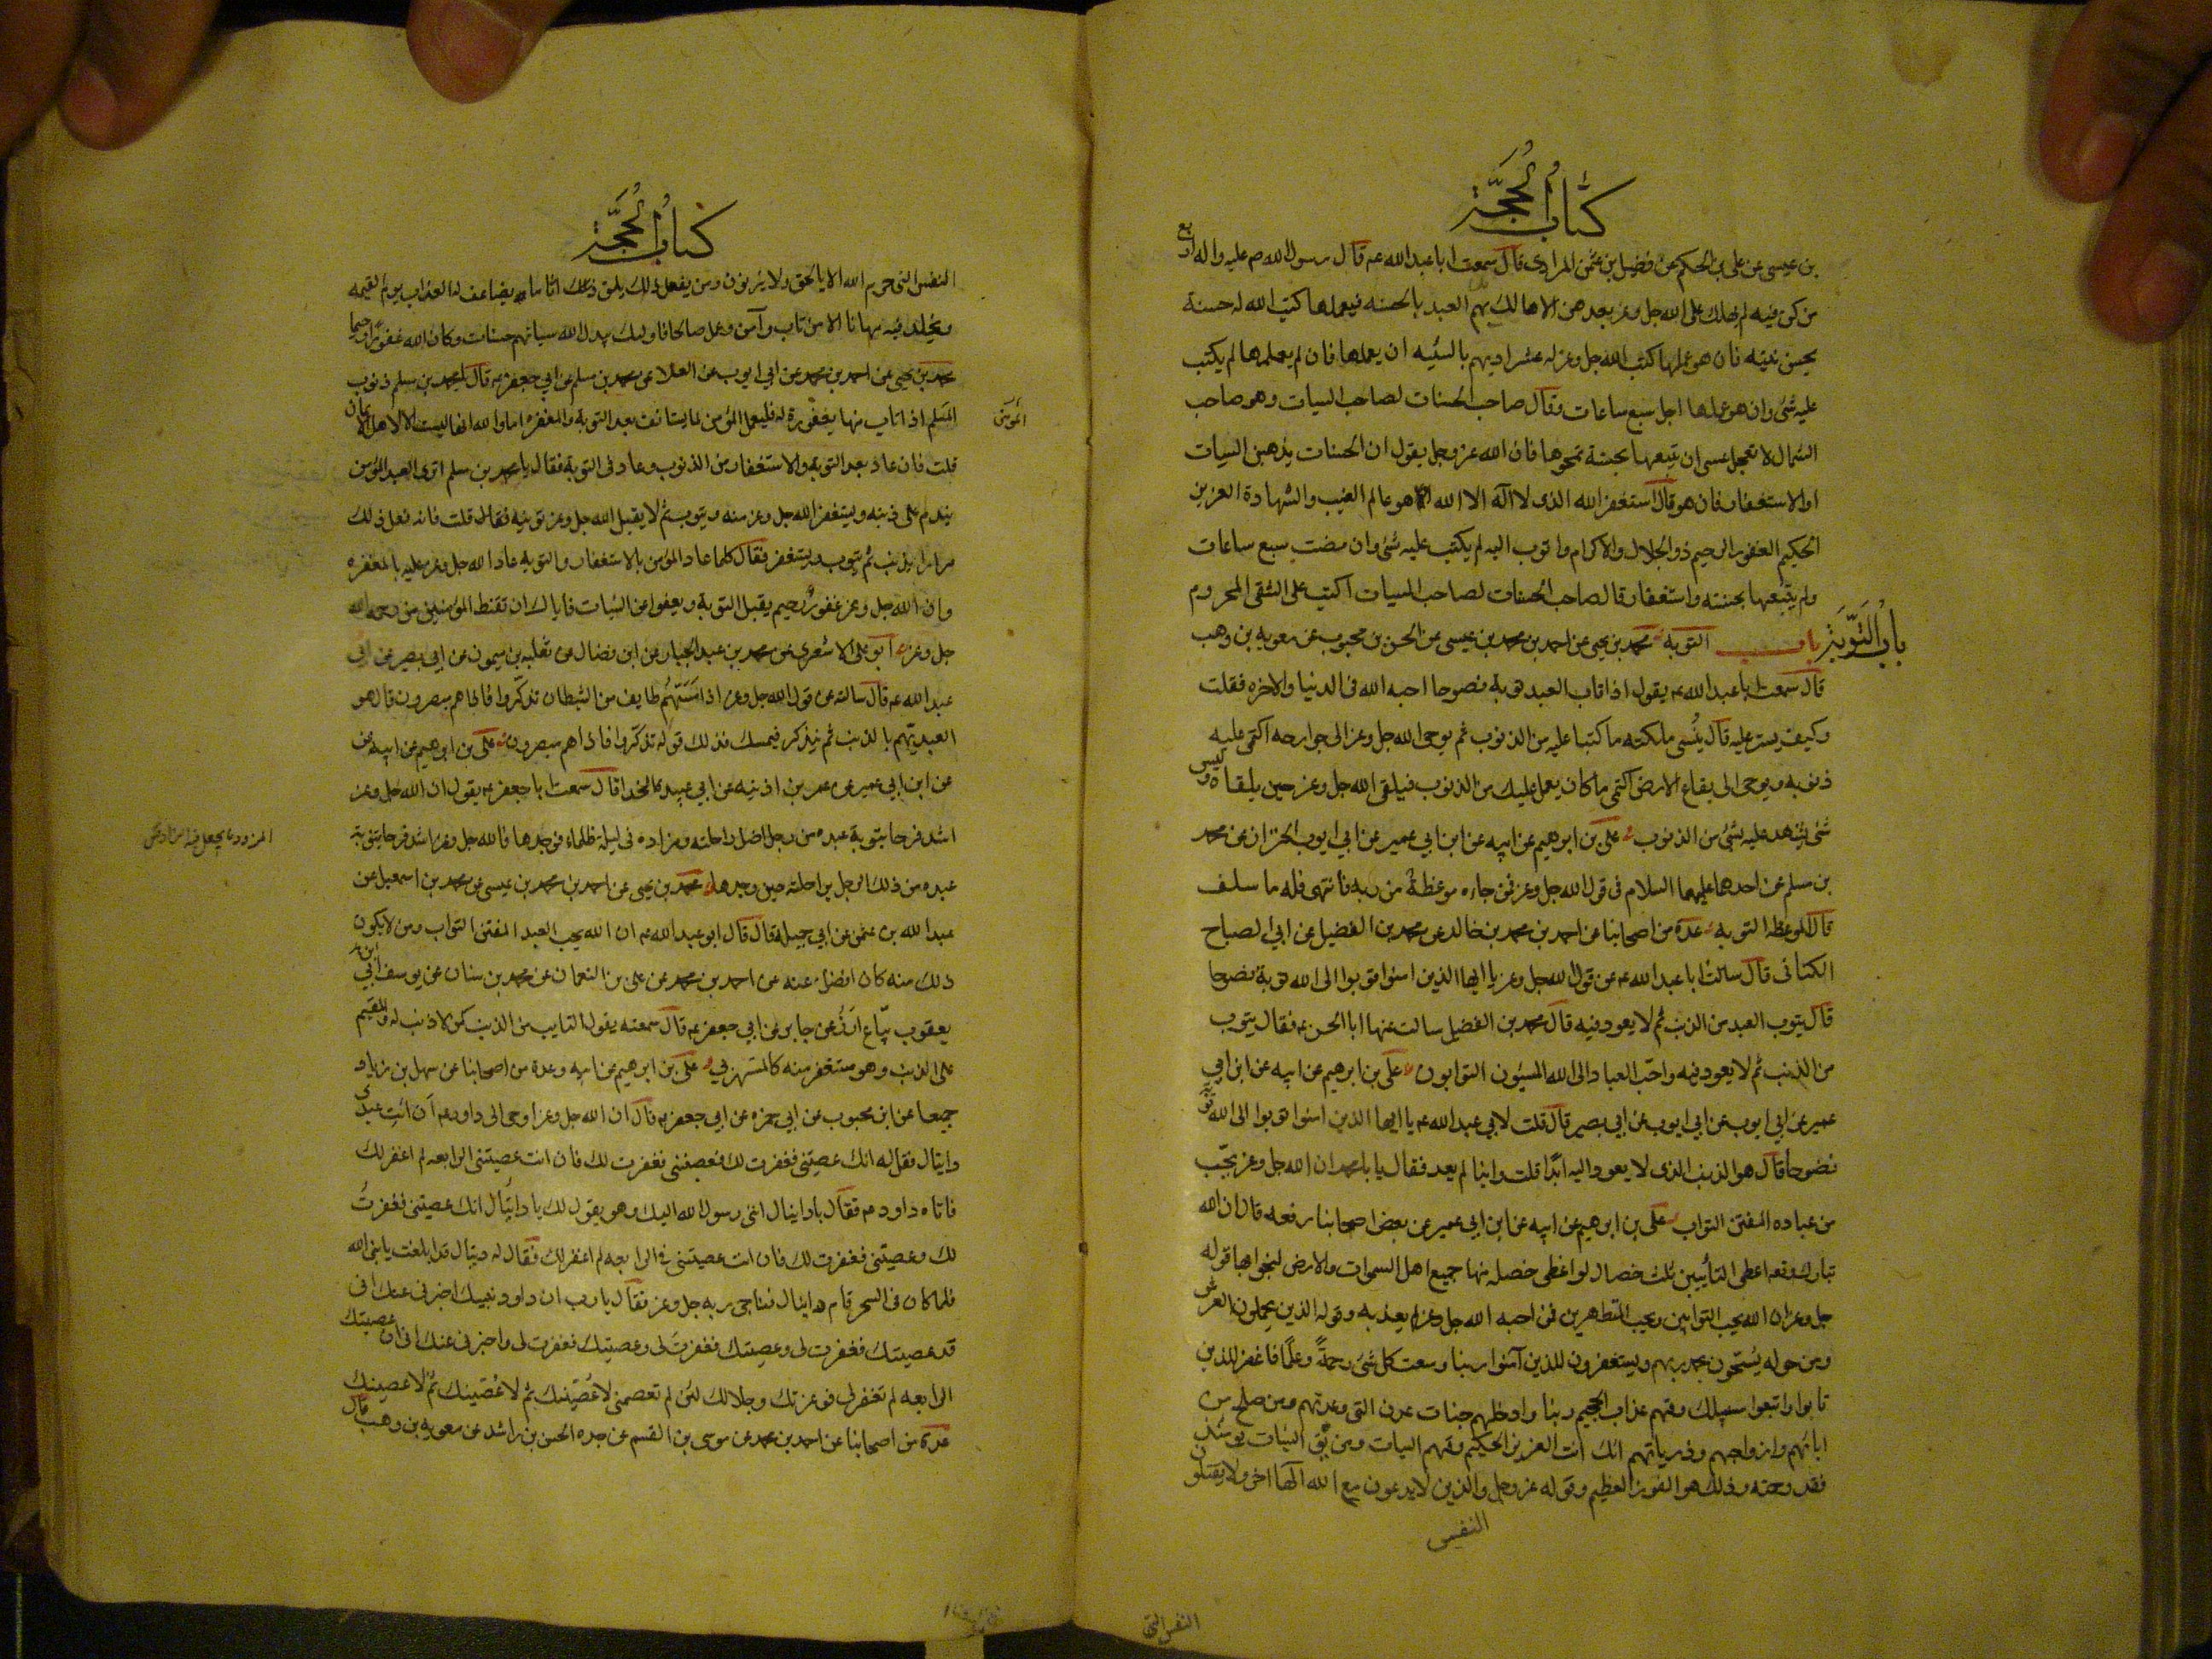 كتاب الحجة
بن عيسى عن على بن الحكم عن فضيل بن عثمن المرادى قال سمعت ابا عبد الله عه قال رسول الله ص عليه واله اربع
من كن فيه لم يهلك على الله جل وعز بعدهن الا هالك يهم العبد بالحسنه فيعملها كتب الله له حسنة
بحسن نيته فان هو عملها كتب الله جل وعز له عشرا ويهم بالسيئه ان يعملها فان لم يعملها لم يكتب
عليه شئ وان هو عملها اجل سبع ساعات وقال صاحب الحسنات لصاحب السيات وهو صاحب
الشمال لا تعجل عسى ان يتبعها بحسنة تمحوها فان الله عز وجل يقول ان الحسنات يذهبن السيات
او الاستغفار فان هو قال استغفر الله الذى لا اله الا الله هو عالم الغيب والشهادة العزيز
الحكيم الغفور الرحيم ذو الجلال والاكرام واتوب اليه لم يكتب عليه شئ وان مضت سبع ساعات
ولم يتبعها بحسنته واستغفار قال صاحب الحسنات لصاحب السيات اكتب على الشقى المحروم
باب التوبة
باب التوبه محمد بن يحيى عن احمد بن محمد بن عيسى عن الحسن بن محبوب عن معويه بن وهب
قال سمعت ابا عبد الله عه يقول اذا تاب العبد توبة نصوحا احبه الله فى الدنيا والاخره فقلت
وكيف يستر عليه قال ينسى ملكيه ما كتبا عليه من الذنوب ثم يوحى الله جل وعز الى جوارحه اكتمى عليه
ذنوبه ويوحى الى بقاع الارض اكتمى ما كان يعمل عليك من الذنوب فيلقى الله جل وعز حين يلقاه وليس
شئ يشهد عليه بشئ من الذنوب على بن ابرهيم عن ابيه عن ابن ابي عمير عن ابي ايوب الخزاز عن محمد
بن مسلم عن احدهما عليهما السلام فى قول الله جل وعز فمن جاءه موعظة من ربه فانتهى فله ما سلف
قال الموعظه التوبه عدة من اصحابنا عن احمد بن محمد بن خالد عن محمد بن الفضيل عن ابي الصباح
الكنانى قال سالت ابا عبد الله عه عن قول الله جل وعز يا ايها الذين امنوا توبوا الى الله توبة نصوحا
قال يتوب العبد من الذنب ثم لا يعود فيه قال محمد بن الفضيل سالت عنها ابا الحسن عه فقال يتوب
من الذنب ثم لا يعود فيه واحب العباد الى الله التوابون على بن ابرهيم عن ابيه عن ابن ابي
عمير عن ابي ايوب عن ابي بصير قال قلت لابي عبد الله عه يا ايها الذين امنوا توبوا الى الله توبة
نصوحا قال هو الذنب الذى لا يعود اليه ابدا قلت واينا لم يعد فقال يابا محمد ان الله جل وعز يحب
من عباده المفتن التواب على بن ابرهيم عن ابيه عن ابن ابي عمير عن بعض اصحابنا رفعه قال ان الله
تبارك وتعه اعطى التائبين ثلث خصال لو اعطى خصله منها جميع اهل السموات والارض لنجوا بها قوله
جل وعز ان الله يحب التوابين ويحب المتطهرين فمن احبه الله جل وعز لم يعذبه وقوله الذين يحملون العرش
ومن حوله يسبحون بحمد ربهم ويستغفرون للذين آمنوا ربنا وسعت كل شئ رحمة وعلما فاغفر للذين
تابوا واتبعوا سبيلك وقهم عذاب الجحيم ربنا وادخلهم جنات عدن التى وعدتهم ومن صلح من
ابائهم وازواجهم وذرياتهم انك انت العزيز الحكيم وقهم السيات ومن تق السيئات يومئذ
فقد رحمته وذلك هو الفوز العظيم وقوله عز وجل والذين لا يدعون مع الله الها اخر ولا يقتلون
النفس
النفس التى
كتاب الحجة
النفس التى حرم الله الا بالحق ولا يزنون ومن يفعل ذلك يلق اثاما يضاعف له العذاب يوم القيمه
ويخلد فيه مهانا الا من تاب وآمن وعمل صالحا فاوليك يبدل الله سياتهم حسنات وكان الله غفورا رحيما
محمد بن يحيى عن احمد بن محمد عن ابي ايوب عن العلا عن محمد بن مسلم عن ابي جعفر عه قال يا محمد بن مسلم ذنوب
المسلم اذا تاب منها مغفورة له فليعمل المؤمن لما يستانف بعد التوبة والمغفره اما والله انها ليست الا لاهل الايمان
المؤمن
قلت فان عاد بعد التوبة والاستغفار من الذنوب وعاد فى التوبة فقال يا محمد بن مسلم اترى العبد المؤمن
يندم على ذنبه ويستغفر الله جل وعز منه ويتوب ثم لا يقبل الله جل وعز توبته فقال قلت فانه فعل ذلك
مرارا يذنب ثم يتوب ويستغفر فقال كلما عاد المؤمن بالاستغفار والتوبه عاد الله جل وعز عليه بالمغفره
وان الله جل وعز غفور رحيم يقبل التوبة ويعفوا عن السيئات فاياك ان تقنط المؤمنين من رحمه الله
جل وعز ابو على الاشعرى عن محمد بن عبد الجبار عن ابن فضال عن ثعلبه بن ميمون عن ابي بصير عن ابي
عبد الله عه قال سالته عن قول الله جل وعز اذا مسهم طايف من الشيطان تذكروا فاذا هم مبصرون قال هو
العبد يهم بالذنب ثم يتذكر فيمسك فذلك قوله تذكروا فاذا هم مبصرون على بن ابرهيم عن ابيه عن
عن ابن ابي عمير عن عمر بن اذنيه عن ابي عبيد الحذا قال سمعت ابا جعفر عه يقول ان الله جل وعز
اشد فرحا بتوبة عبده من رجل اضل راحلته ومزاده فى ليلة ظلماء فوجدها فالله جل وعز اشد فرحا بتوبة
عبده من ذلك الرجل براحلته حين وجدها محمد بن يحيى عن احمد بن محمد بن عيسى عن محمد بن اسمعيل عن
عبد الله بن عثمن عن ابي جميله قال قال ابو عبد الله عه ان الله يحب العبد المفتن التواب ومن لا يكون
ذلك منه كان افضل عنه عن احمد بن محمد عن على بن النعمان عن محمد بن سنان عن يوسف ابي
يعقوب بياع الارز عن جابر عن ابي جعفر عه قال سمعته يقول التايب من الذنب كمن لا ذنب له والمقيم
على الذنب وهو مستغفر منه كالمستهزي على بن ابرهيم عن ابيه وعدة من اصحابنا عن سهل بن زياد
جميعا عن ابن محبوب عن ابي حمزه عن ابي جعفر عه قال ان الله جل وعز اوحى الى داود عه ان ائت عبدى
دانيال فقل له انك عصيتنى فغفرت لك وعصيتنى فغفرت لك فان انت عصيتنى الرابعه لم اغفر لك
فاتاه داود عه فقال يا دانيال اننى رسول الله اليك وهو يقول لك يا دانيال انك عصيتنى فغفرت
لك وعصيتنى فغفرت لك فان انت عصيتنى فى الرابعه لم اغفر لك فقال له دنيال قد ابلغت يا نبى الله
فلما كان فى السحر قام دانيال فناجى ربه جل وعز فقال يا رب ان داود نبيك اخبرنى عنك انى
قد عصيتك فغفرت لى وعصيتك فغفرت لى وعصيتك فغفرت لى واخبرنى عنك انى ان عصيتك
الرابعه لم تغفر لى فوعزتك وجلالك لئن لم تعصمنى لاعصينك ثم لاعصينك ثم لاعصينك
عدة من اصحابنا عن احمد بن محمد عن موسى بن القسم عن جده الحسن بن راشد عن معويه بن وهب قال